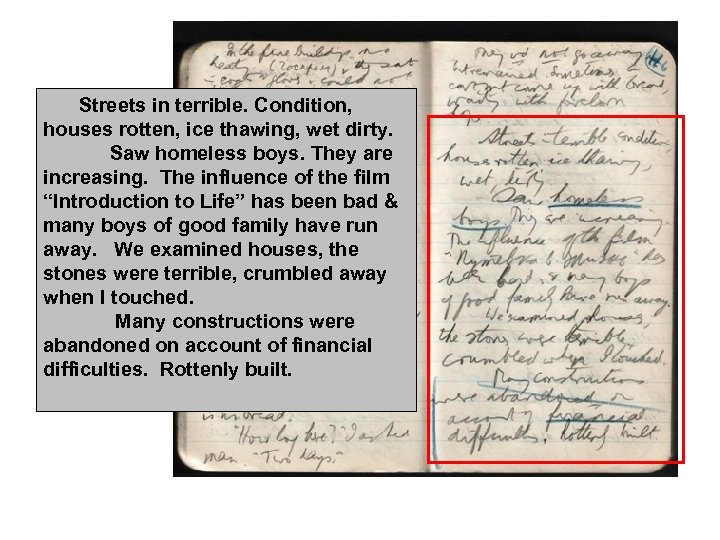 Streets in terrible. Condition,
houses rotten, ice thawing, wet dirty.
Saw homeless boys. They are
increasing. The influence of the film
“Introduction to Life” has been bad &
many boys of good family have run
away. We examined houses, the
stones were terrible, crumbled away
when I touched.
Many constructions were
abandoned on account of financial
difficulties. Rottenly built.
In the fine buildings no
heat
& could not
is no bread.
"How long here?" I asked
man. "Two days."
They do not go away
but remained sometimes a
cart came up with bread
waiting with forlorn
hope.
Streets terrible condition,
houses rotten ice thawing,
wet, dirty
Saw homeless
boys. They are increasing.
The influence of the film
has
been bad & many boys
of good family have run away.
We examined houses,
the stones were terrible,
crumbled when I touched.
Many constructions
were abandoned on
account of financial
difficulties. Rottenly built.